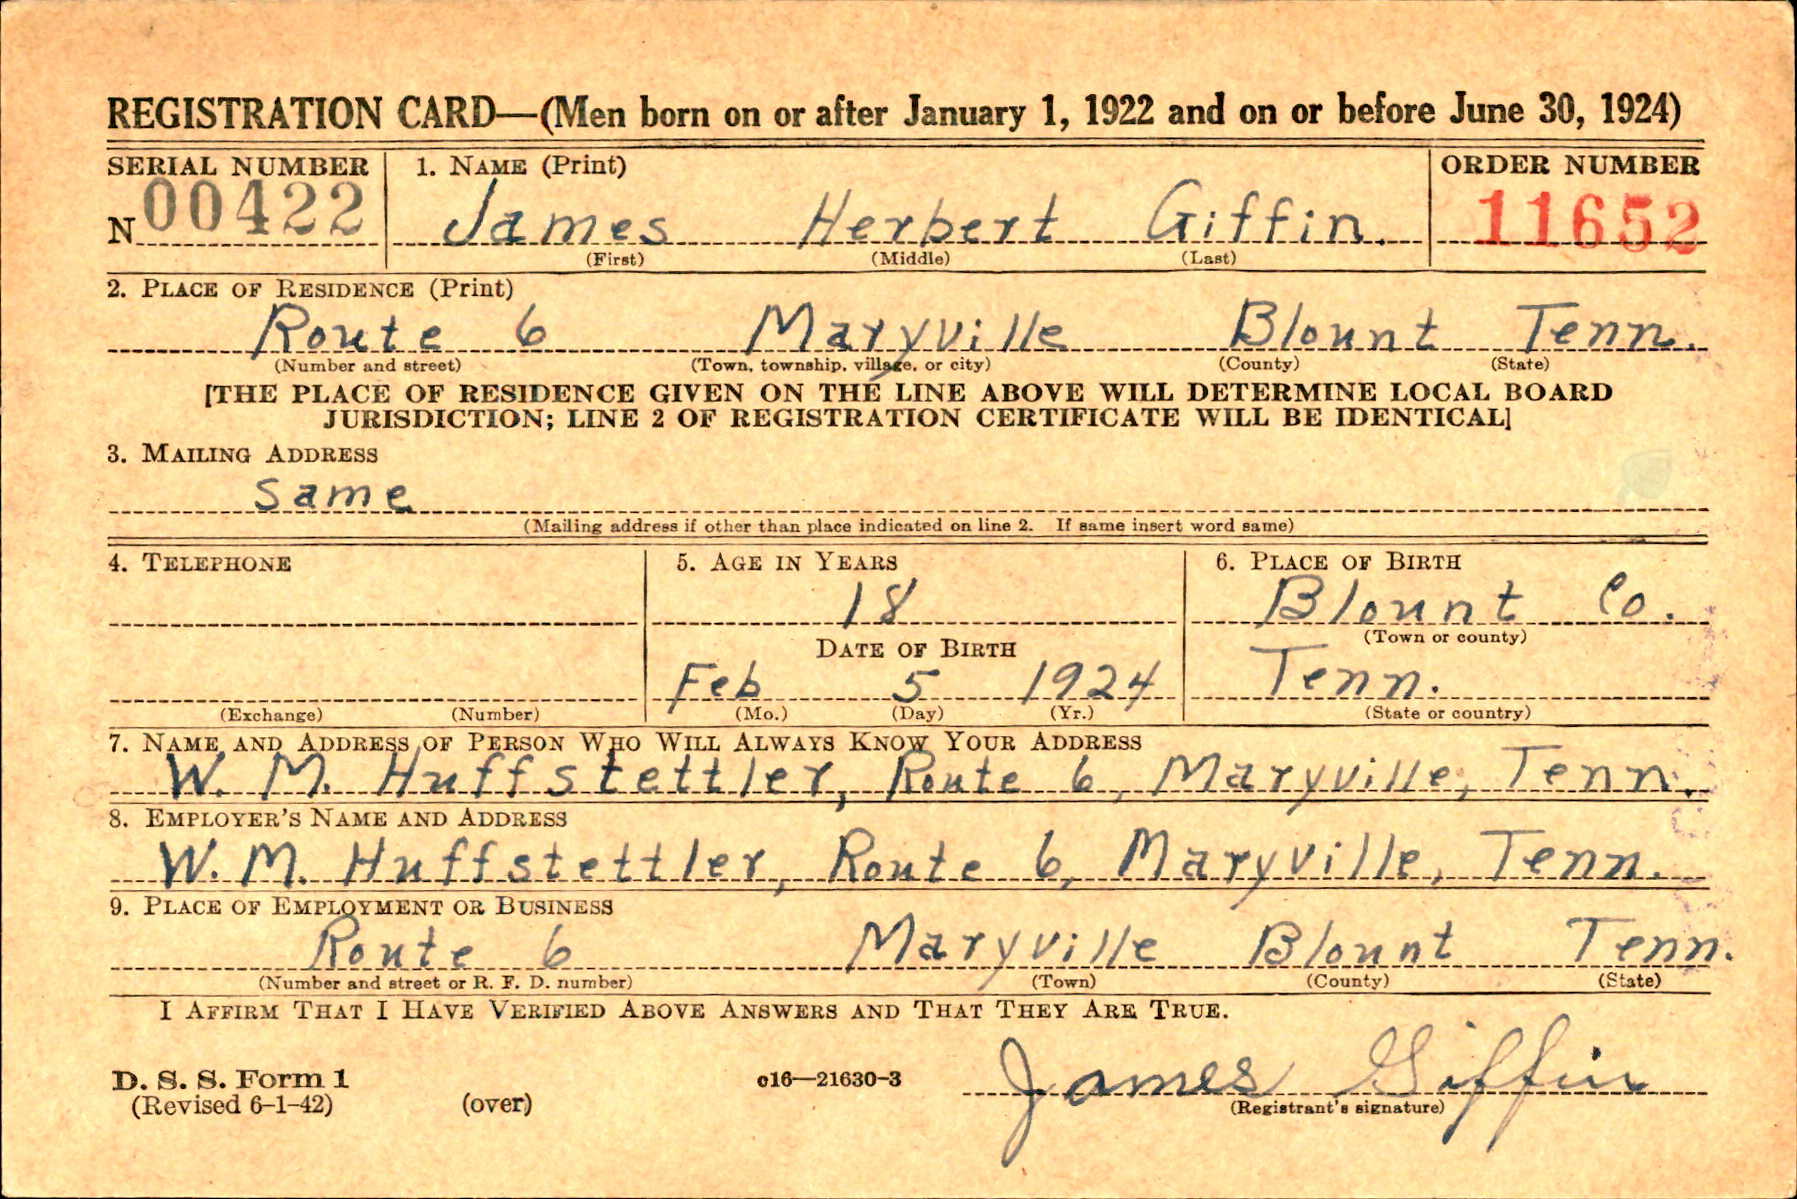 REGISTRATION CARD—(Men born on or after January 1, 1922 and on or before June 30, 1924)
SERIAL NUMBER 1. NAME (Print) ORDER NUMBER
N 00422 James Herbert Giffin. 11652
(First) (Middle) (Last)
2. PLACE OF RESIDENCE (Print)
Route 6 Maryville Blount Tenn.
(Number and street) (Town, township, village, or city) (County) (State)
[THE PLACE OF RESIDENCE GIVEN ON THE LINE ABOVE WILL DETERMINE LOCAL BOARD
JURISDICTION; LINE 2 OF REGISTRATION CERTIFICATE WILL BE IDENTICAL]
3. MAILING ADDRESS
same
(Mailing address if other than place indicated on line 2. If same insert word same)
4. TELEPHONE 5. AGE IN YEARS 6. PLACE OF BIRTH
18 Blount Co.
DATE OF BIRTH (Town or county)
Feb 5 1924 Tenn.
(Exchange) (Number) (Mo.) (Day) (Yr.) (State or country)
7. NAME AND ADDRESS OF PERSON WHO WILL ALWAYS KNOW YOUR ADDRESS
W. M. Huffstettler, Route 6, Maryville, Tenn.
8. EMPLOYER'S NAME AND ADDRESS
W. M. Huffstettler, Route 6, Maryville, Tenn.
9. PLACE OF EMPLOYMENT OR BUSINESS
Route 6 Maryville Blount Tenn.
(Number and street or R. F. D. number) (Town) (County) (State)
I AFFIRM THAT I HAVE VERIFIED ABOVE ANSWERS AND THAT THEY ARE TRUE.
James Giffin
D. S. S. Form 1 c16—21630-3
(Revised 6-1-42) (over) (Registrant's signature)